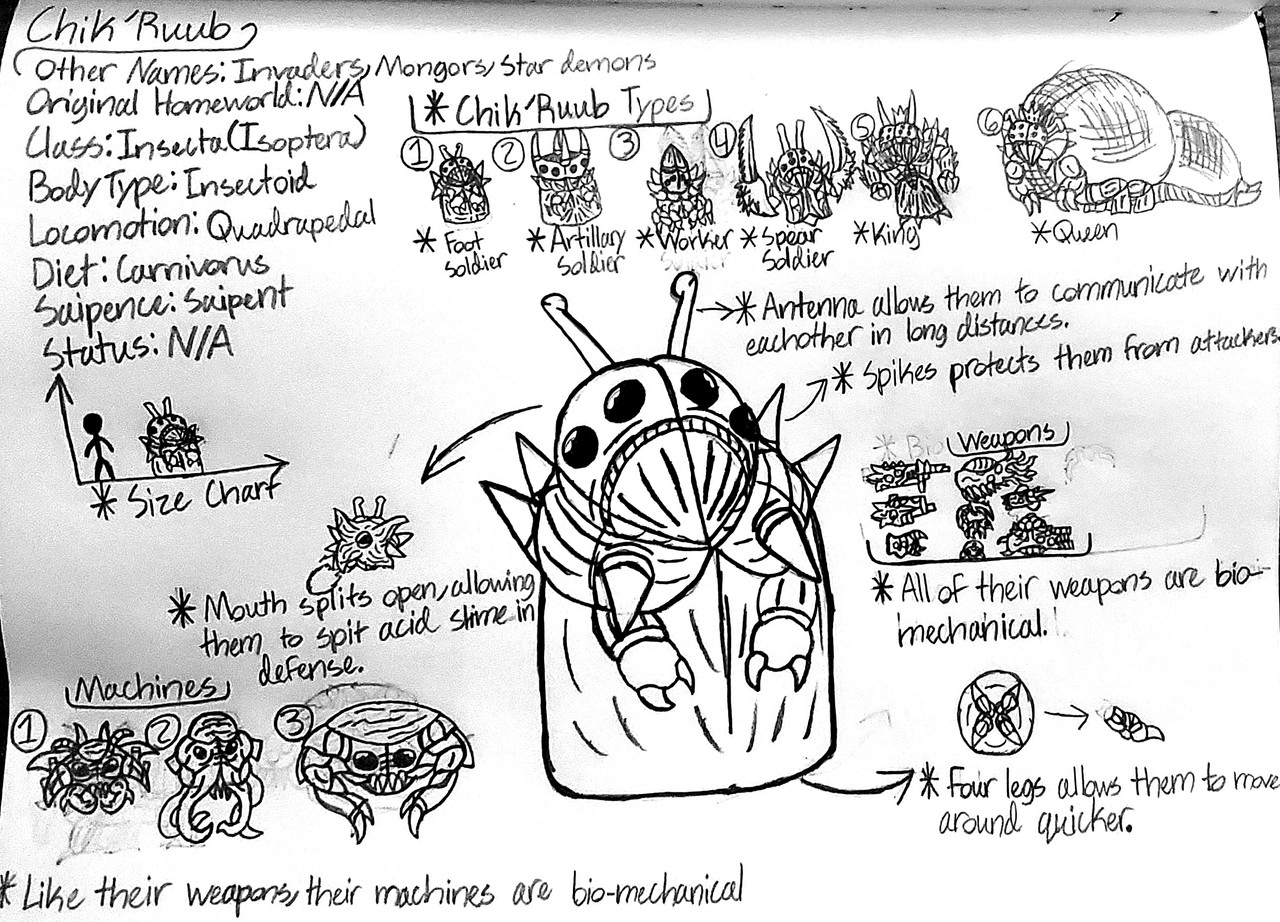 Chik'Ruub
Other Names: Invaders, Mongors, Star demons
Original Homeworld: N/A
Class: Insecta (Isoptera)
Body Type: Insectoid
Locomotion: Quadrapedal
Diet: Carnivorus
Saipence: Saipent
Status: N/A
* Size Chart
* Chik'Ruub Types
1 2 3 4 5 6
* Foot Soldier
* Artillary Soldier
* Worker
* Spear Soldier
* King
* Queen
→ * Antenna allows them to communicate with
eachother in long distances.
* Spikes protects them from attackers.
* Bio Weapons
* All of their weapons are bio-
mechanical.
* Mouth splits open, allowing
them to spit acid slime in
defense.
Machines
1 2 3
* Four legs allows them to move
around quicker.
* Like their weapons, their machines are bio-mechanical